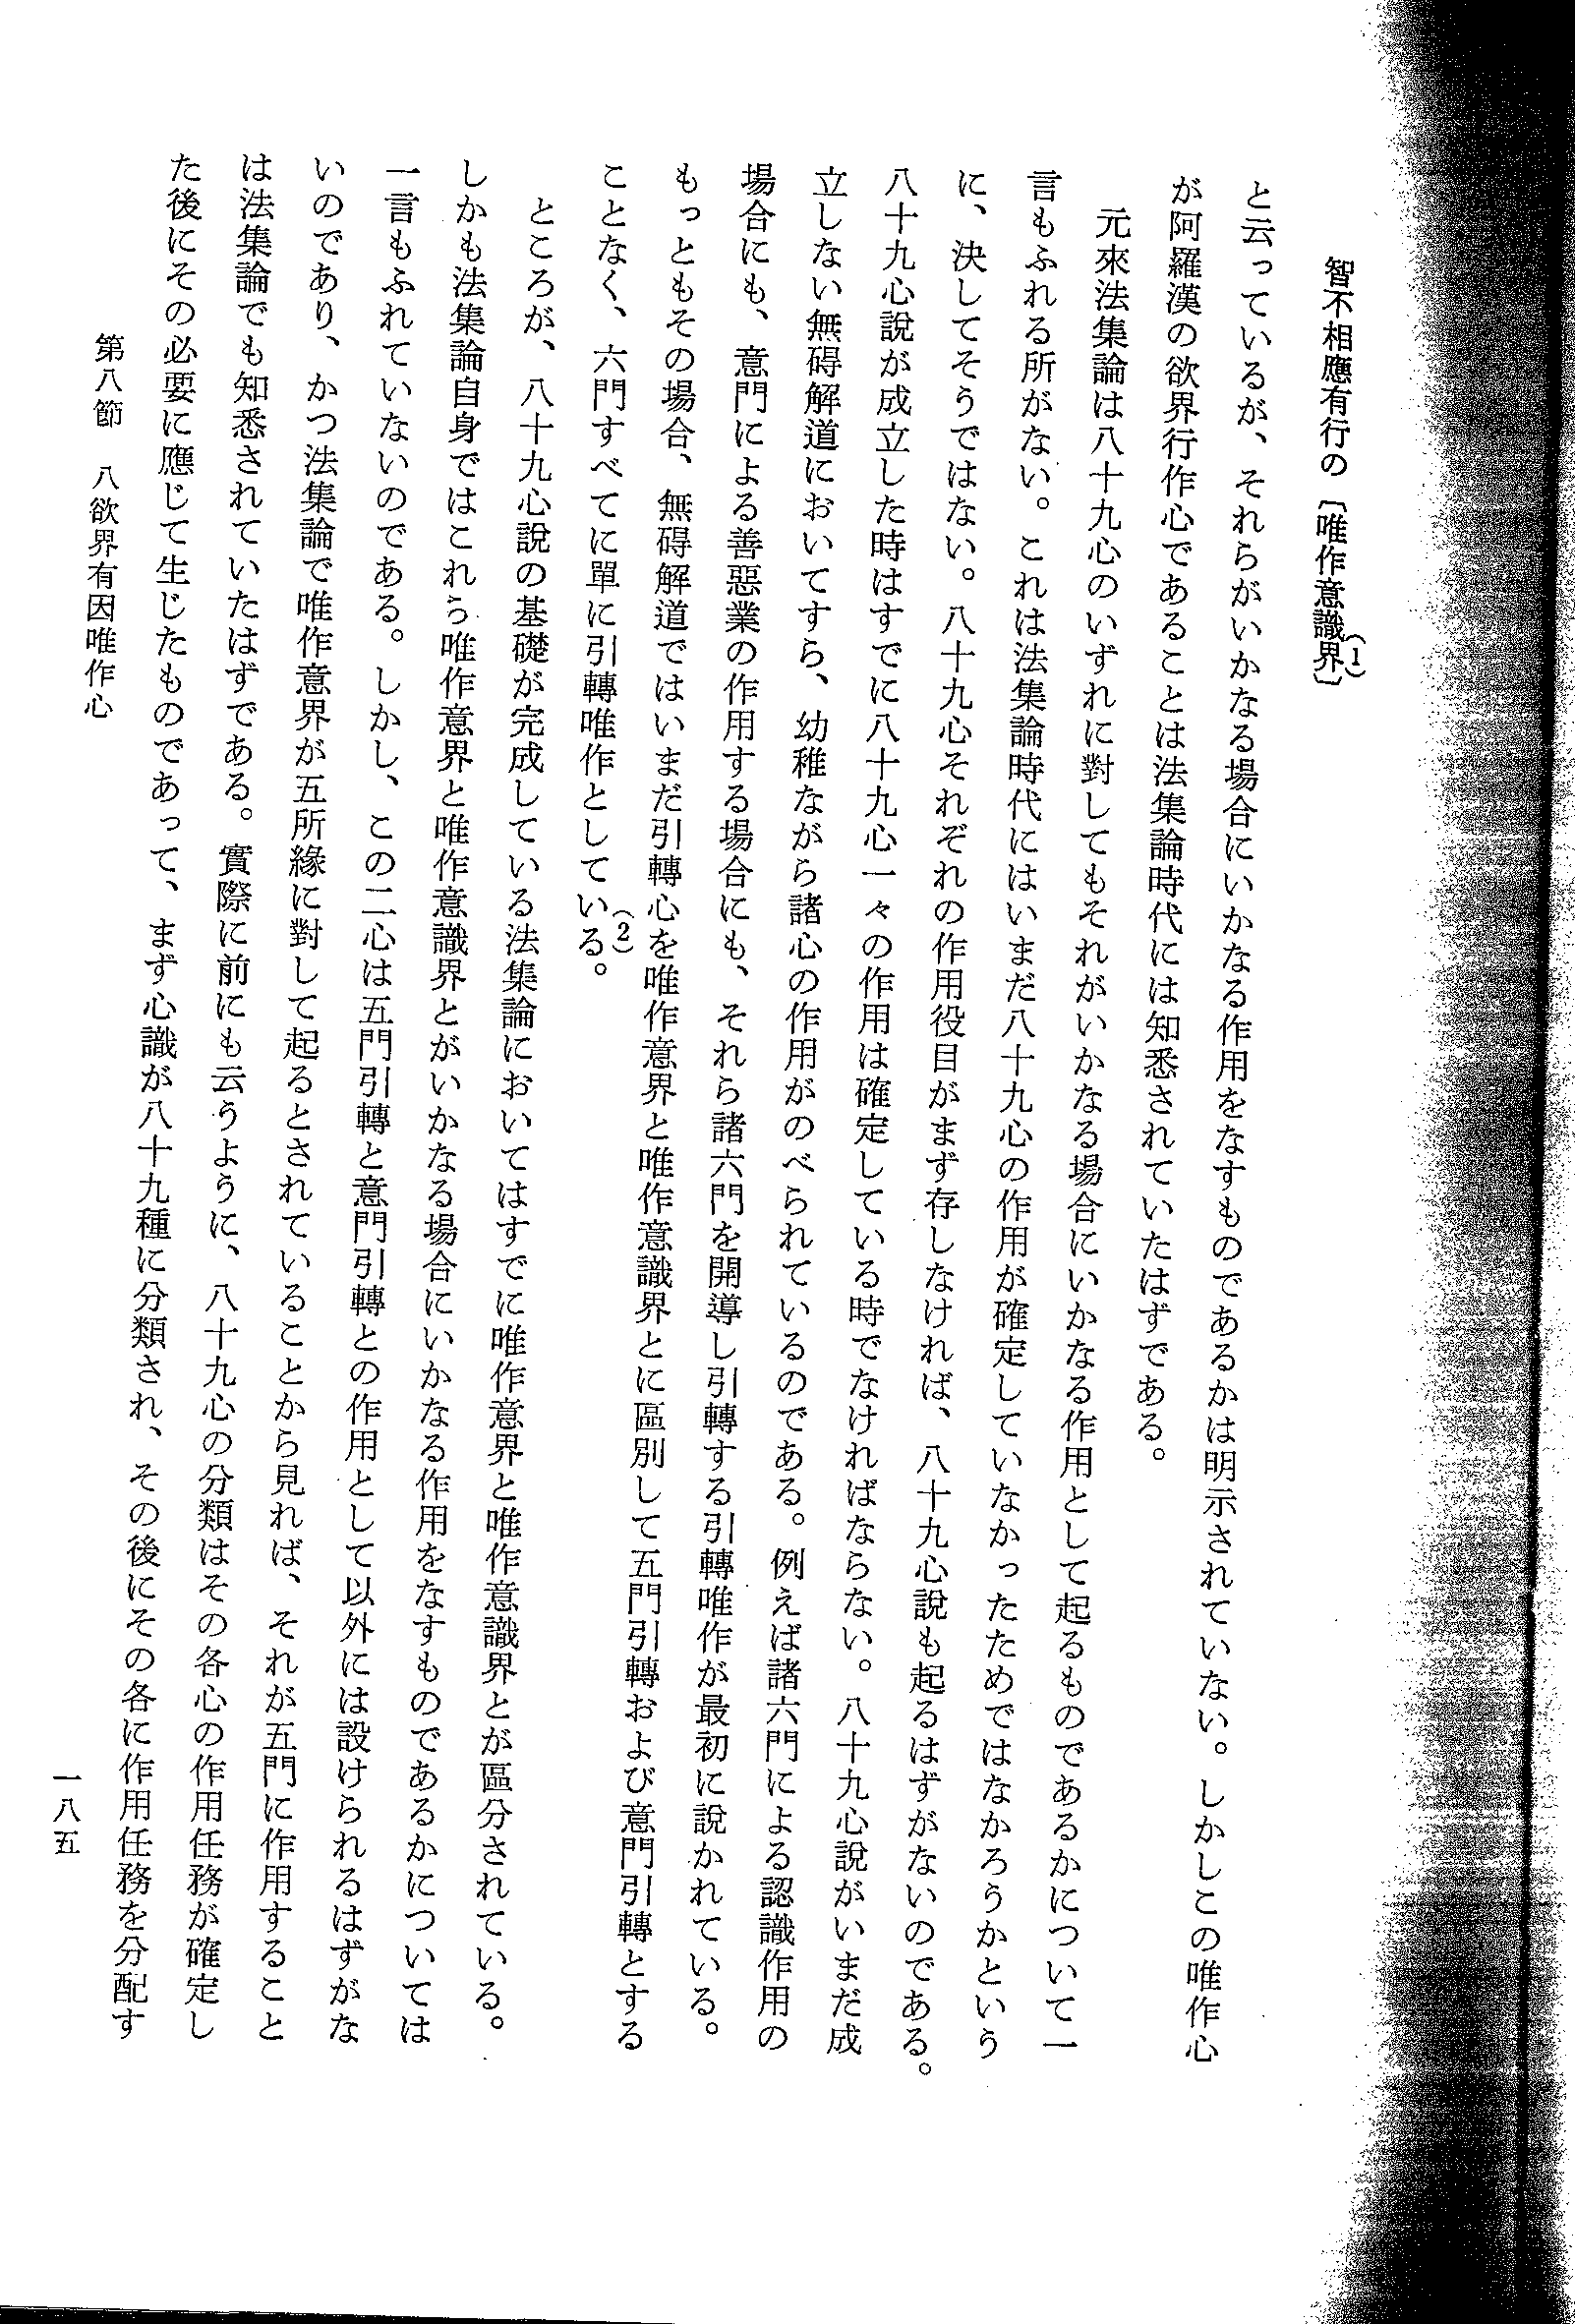 智不相應有行の〔唯作意識界〕(1)
と云っているが、それらがいかなる場合にいかなる作用をなすものであるかは明示されていない。しかしこの唯作心
が阿羅漢の欲界行作心であることは法集論時代には知悉されていたはずである。
元來法集論は八十九心のいずれに對してもそれがいかなる場合にいかなる作用として起るものであるかについて一
言もふれる所がない。これは法集論時代にはいまだ八十九心の作用が確定していなかったためではなかろうかという
に、決してそうではない。八十九心それぞれの作用役目がまず存しなければ、八十九心說も起るはずがないのである。
八十九心說が成立した時はすでに八十九心一々の作用は確定している時でなければならない。八十九心說がいまだ成
立しない無碍解道においてすら、幼稚ながら諸心の作用がのべられているのである。例えば諸六門による認識作用の
場合にも、意門による善惡業の作用する場合にも、それら諸六門を開導し引轉する引轉唯作が最初に說かれている。
もっともその場合、無碍解道ではいまだ引轉心を唯作意界と唯作意識界とに區別して五門引轉および意門引轉とする
ことなく、六門すべてに單に引轉唯作としている。(2)
ところが、八十九心說の基礎が完成している法集論においてはすでに唯作意界と唯作意識界とが區分されている。
しかも法集論自身ではこれら唯作意界と唯作意識界とがいかなる場合にいかなる作用をなすものであるかについては
一言もふれていないのである。しかし、この二心は五門引轉と意門引轉との作用として以外には設けられるはずがな
いのであり、かつ法集論で唯作意界が五所緣に對して起るとされていることから見れば、それが五門に作用すること
は法集論でも知悉されていたはずである。實際に前にも云うように、八十九心の分類はその各心の作用任務が確定し
た後にその必要に應じて生じたものであって、まず心識が八十九種に分類され、その後にその各に作用任務を分配す
第八節　八欲界有因唯作心
一八五